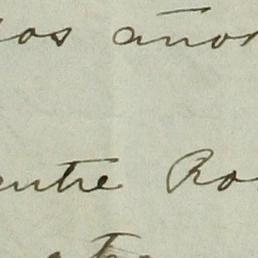 los años
entre Ro